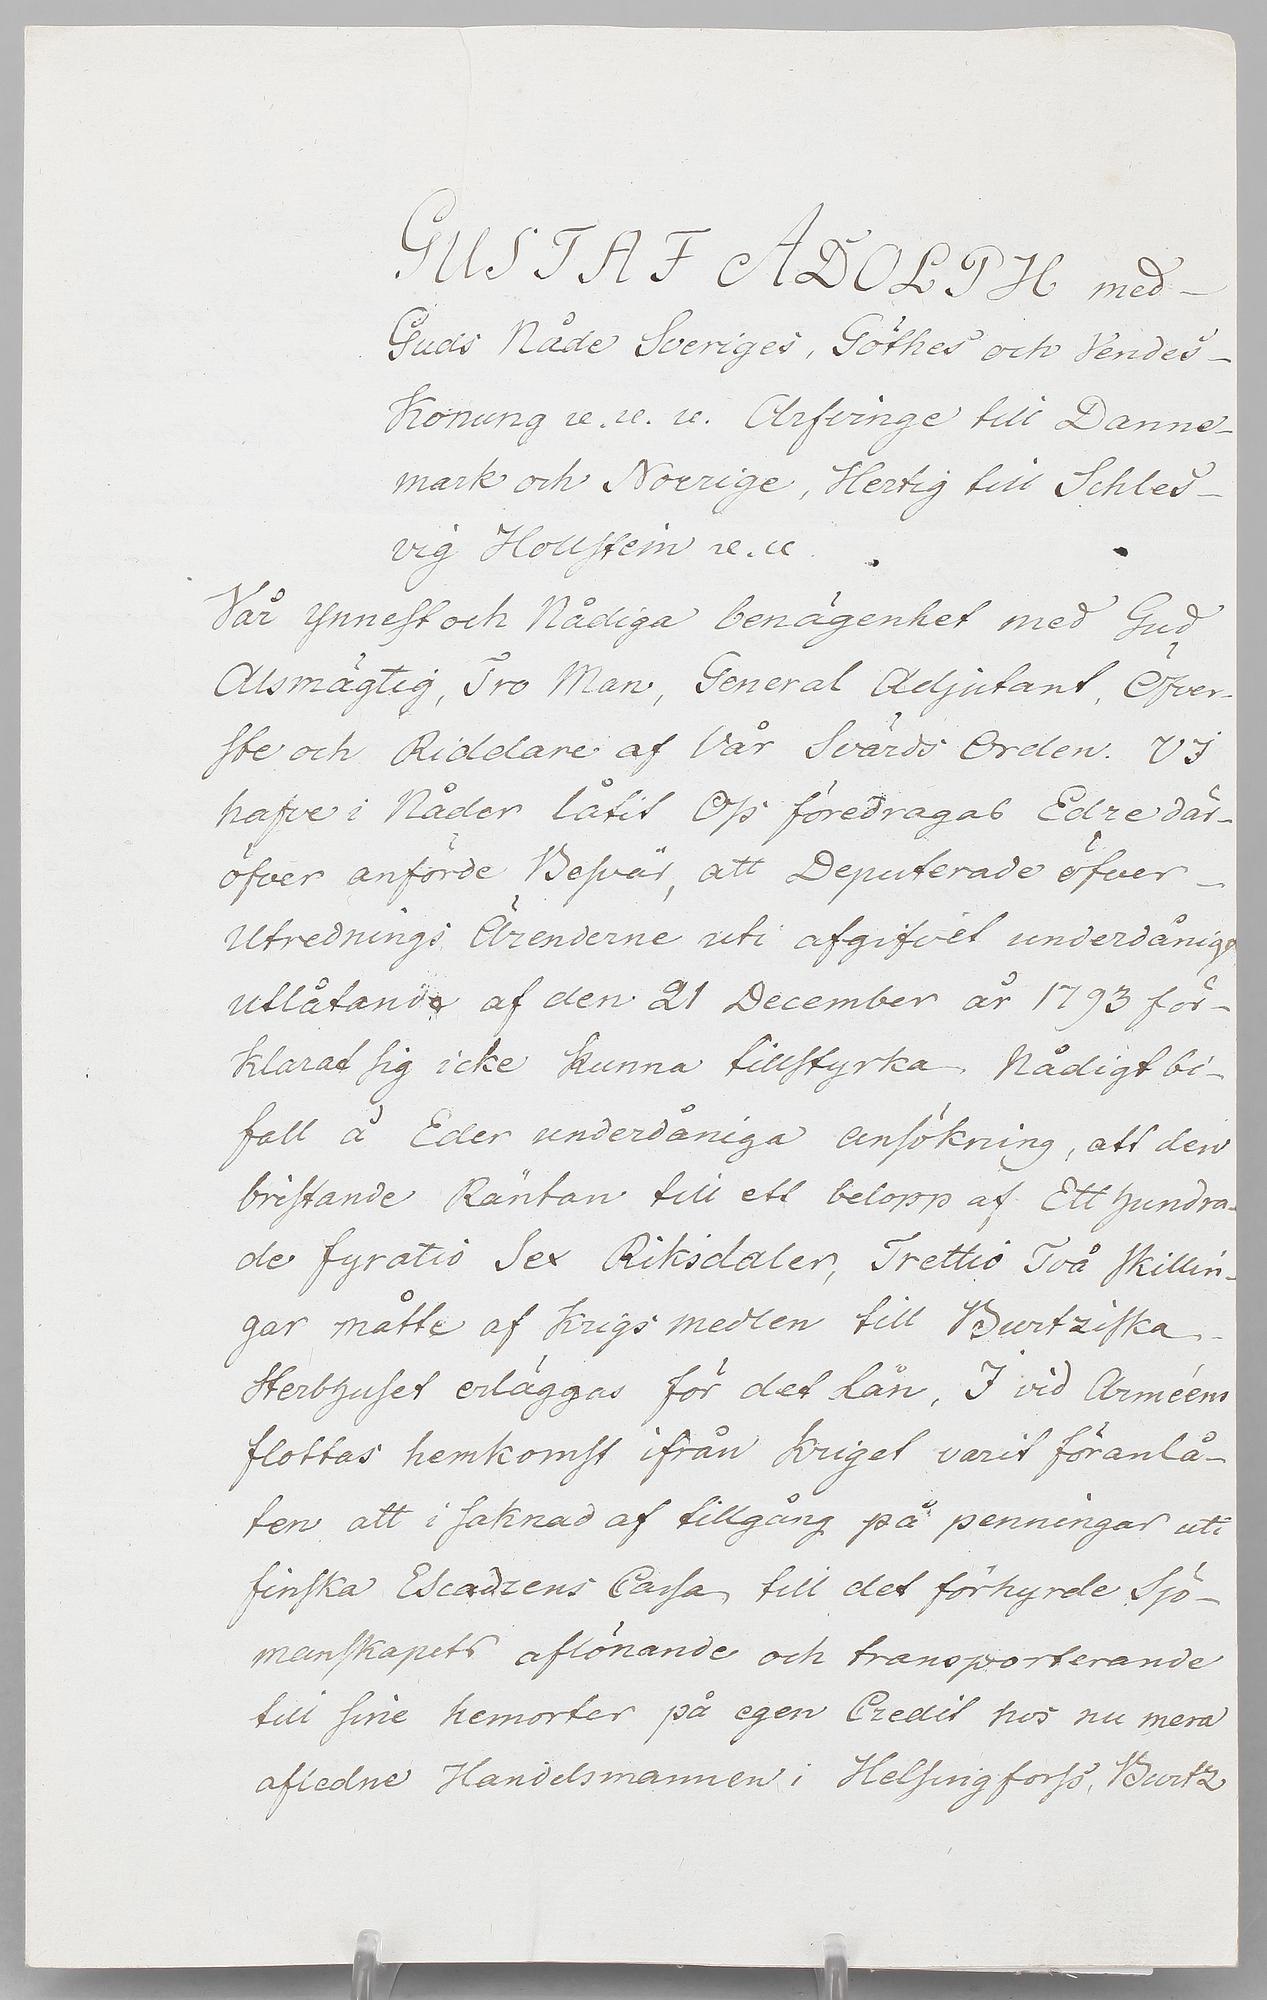 GUSTAF ADOLPH med
Guds Nåde Sveriges, Göthes och Vendes
Konung &c. &c. &c. Arfvinge till Danne-
mark och Norrige, Hertig till Schles-
vig Hollstein &c. &c.
Vår ynnest och Nådiga benägenhet med Gud
Alsmägtig, Tro Man, General Adjutant, Öfver-
ste och Riddare af Vår Svärds Orden. VI
hafve i Nåder låtit Oss föredragas Edre där-
öfver anförde Besvär, att Deputerade öfver
Utrednings Ärenderne uti afgifvet underdånigt
utlåtande af den 21 December år 1793 för-
klarat sig icke kunna tillstyrka Nådigt bi-
fall å Eder underdåniga ansökning, att den
bristande Räntan till ett belopp af Ett hundra-
de fyratio Sex Riksdaler, Trettio Två skillin-
gar måtte af Krigs medlen till Burtziska
Sterbhuset erläggas för det Lån, I vid Arméens
flottas hemkomst ifrån Kriget varit föranlå-
ten att i saknad af tillgång på penningar uti
finska Escadrens Cassa, till det förhyrde Sjö-
manskapets aflönande och transporterande
till sine hemorter på egen Credit hos nu mera
afledne Handelsmannen i Helsingforss, Burtz